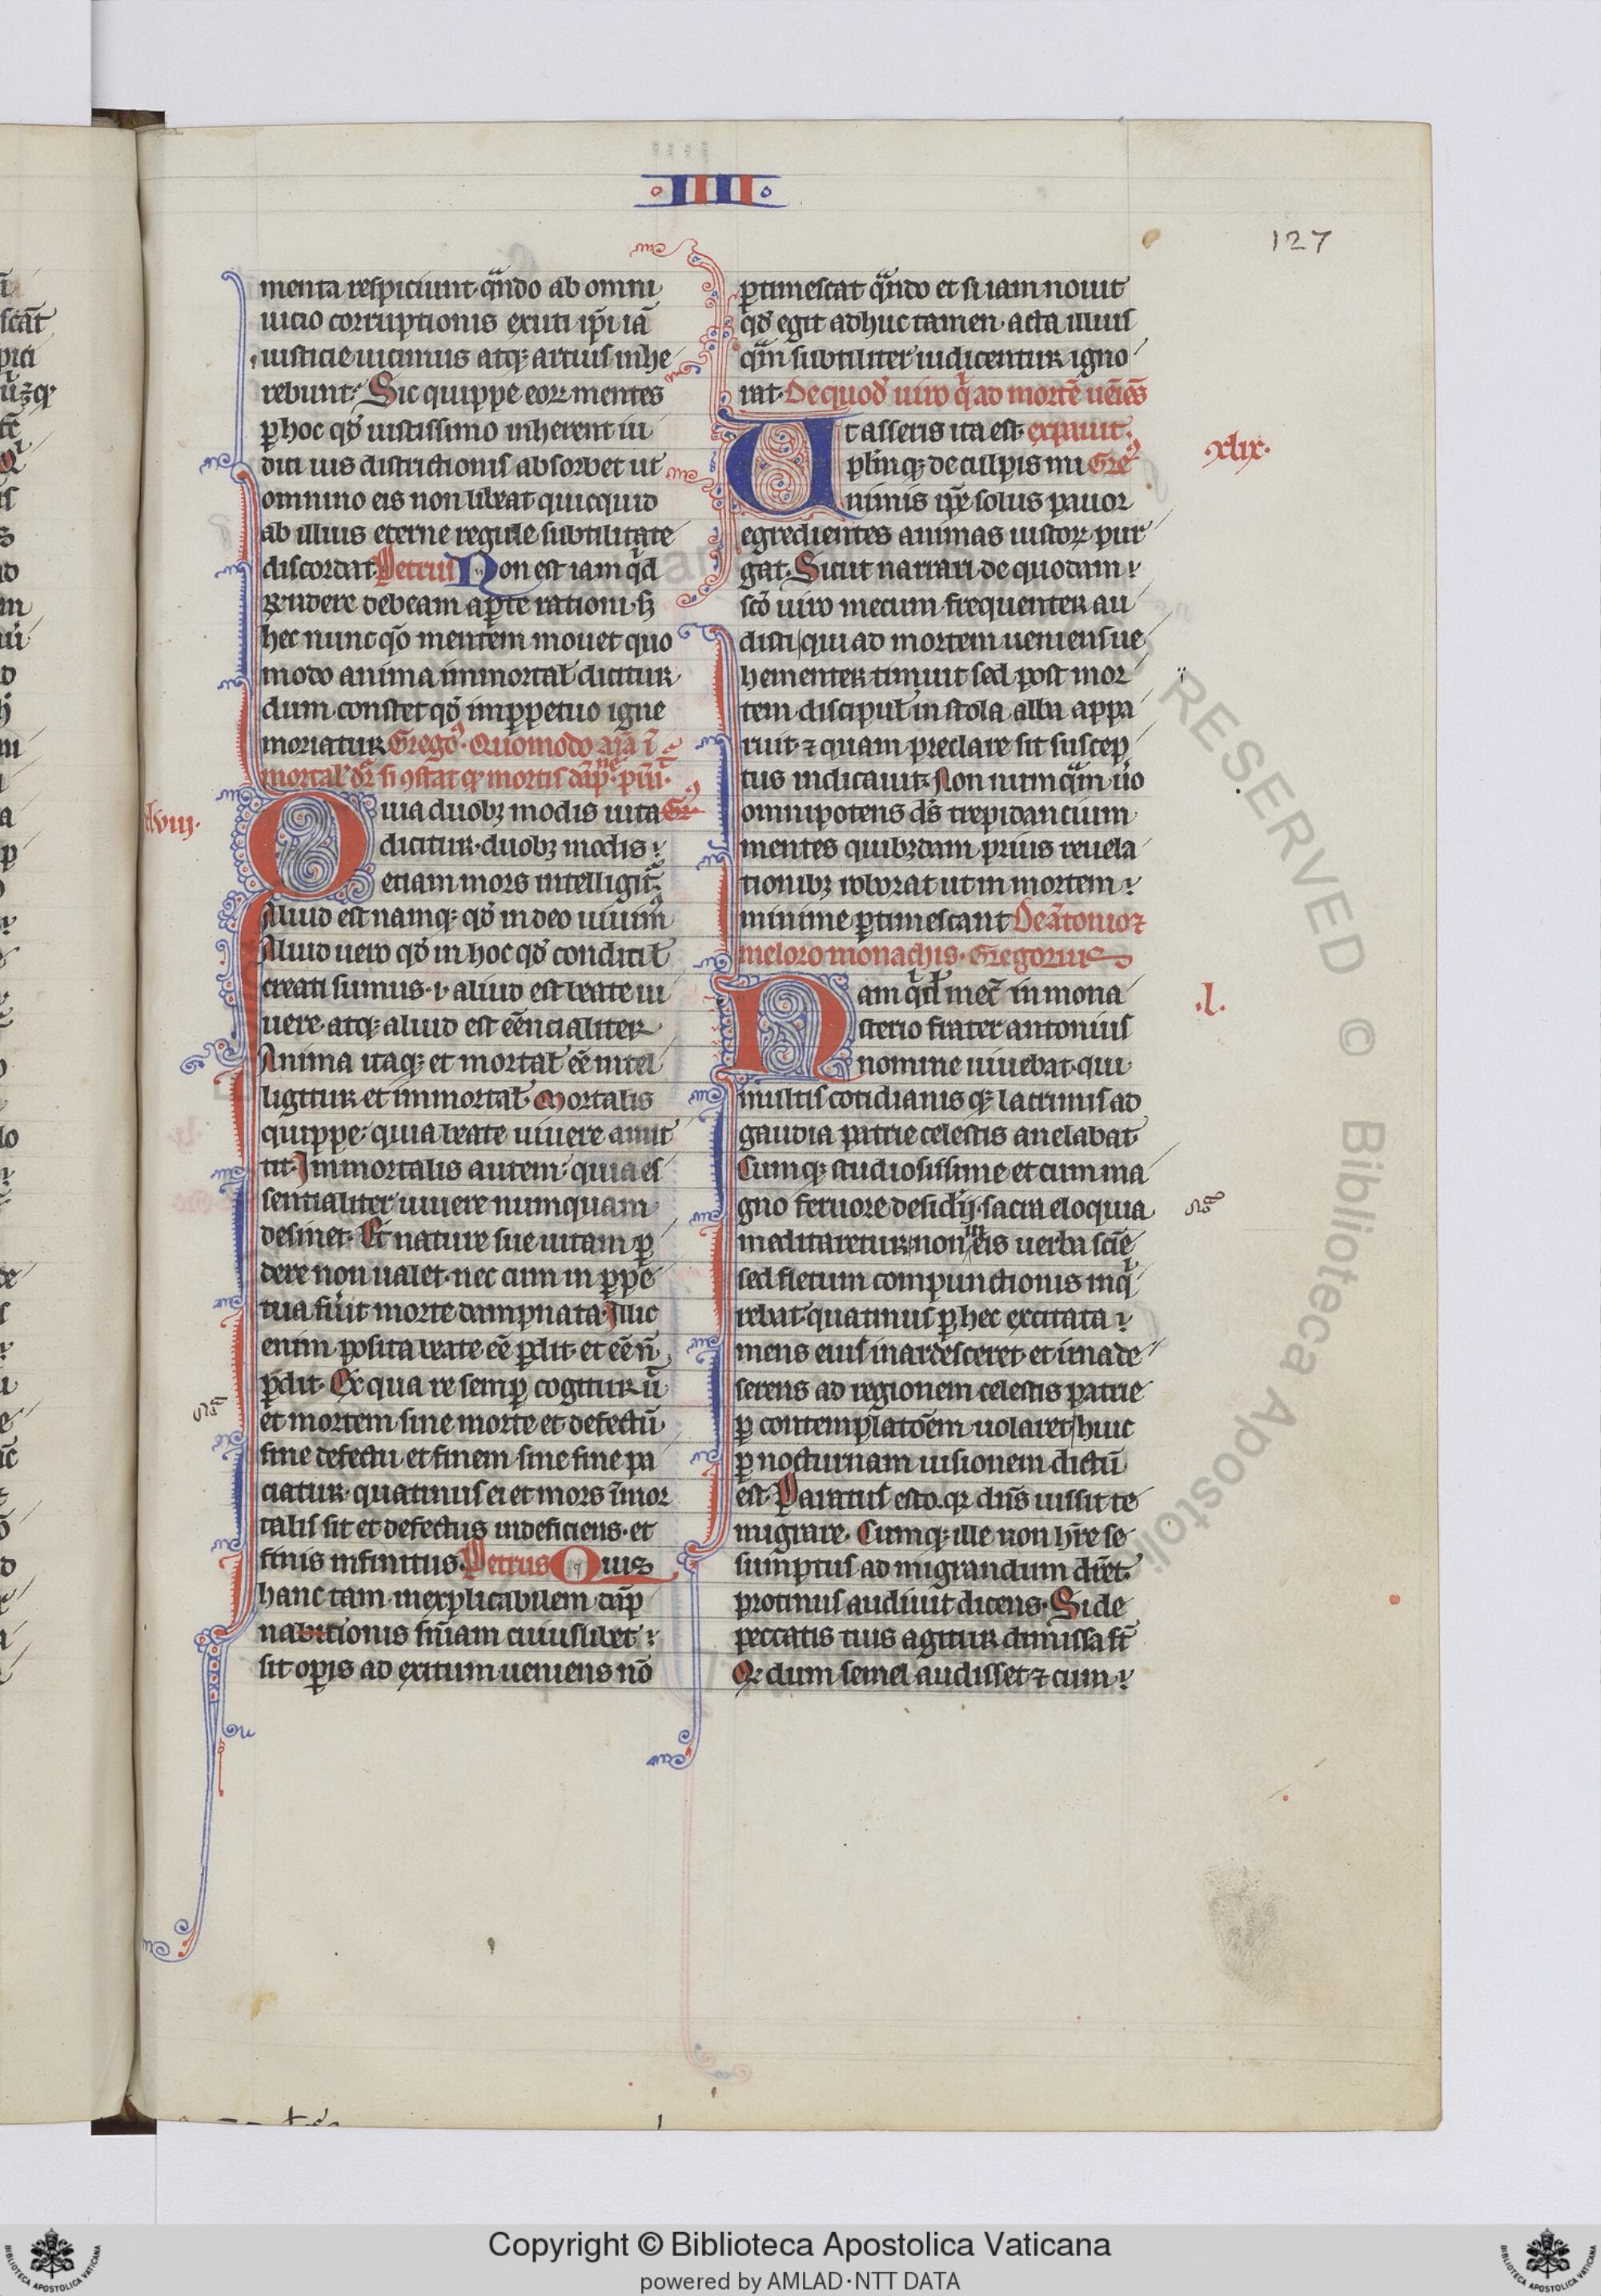 IIII
127
menta respiciunt. qͣndo ab omni
uicio corruptionis exuti. ip̄i iā
iusticie uicinius atqꝫ artius inhe
rebunt. Sic quippe eoꝝ mentes
ꝑ hoc qđ iustissimo inherent iu
dici uis districtionis absorbet ut
omnino eis non libeat quicquid
ab illius eterne regule subtilitate
discordat. Petrus Non est iam qͥd
rn̄dere debeam aꝑte rationi. sꝫ
hec nunc qō mentem mouet quo
modo anima immortal̄ dicitur
dum constet qđ imꝑpetuo igne
moriatur. Gregoꝰ. Quomodo aīa ī
mortal̄ dr̄ si ꝯstat qꝫ mortis dāpne
xlviii.
Quia duobꝫ modis uita Gr̄
dicitur. duobꝫ modis
etiam mors intelligit᷑.
Aliud est namqꝫ qđ in deo uiuimꝰ
Aliud uero qđ in hoc qđ conditi l̄
creati sumus. i. aliud est beate ui
uere. atqꝫ aliud est eēncialiter
Anima itaqꝫ et mortal̄ eē intel
ligitur et immortal̄. Mortalis
quippe: quia beate uiuere amit
tit. Immortalis autem: quia es
sentialiter uiuere numquam
desinet. Et nature sue uitam ꝑ
dere non ualet. nec cum in ꝑpe
tua fūit morte dampnata. Illuc
enim posita beate eē ꝑdit. et eē n̄
ꝑdit. Ex qua re semꝑ cogitur ū
et mortem sine morte et defectū
sine defectu et finem sine fine pa
ciatur. quatinus ei et mors īmor
talis sit et defectus indeficiens. et
finis infinitus. Petrus Quis
hanc tam inexplicabilem dāp
nationis sn̄iam cuiuslibet
sit oꝑis ad exitum ueniens nō
ꝑtimescat. qͣndo et si iam nouit
qđ egit adhuc tamen. acta illius
qͣm subtiliter iudicentur. igno
rat. De quodꝰ uiro qͥ ad mortē ueīes
xlix.
Ut asseris ita est. expauit.
plr̄unqꝫ de culpis mi Gre
nimis ip̄e solus pauor
egredientes animas iustoꝝ pur
gat. Sicut narrari de quodam
sc̄o uiro mecum frequenter au
disti qui ad mortem ueniens ue
hementer timuit sed post mor
tem discipul̄ in stola alba appa
ruit. ⁊ quam preclare sit suscep
tus indicauit. Non numqͣm ūo
omnipotens ds̄ trepidancium
mentes quibꝫdam prius reuela
tionibꝫ roborat ut in mortem
minime ꝑtimescant. De ātonio ⁊
meloro monachis. Gregorius
.l.
Nam qͥd̄ mec̄ in mona
sterio frater antonius
nomine uiuebat. qui
multis cotidianis qꝫ lacrimis ad
gaudia patrie celestis anelabat
Cumqꝫ studiosissime et cum ma
gno feruore desid̄ij. sacra eloquia
meditaretur. non in eis uerba scīe
sed fletum compunctionis inqͥ
rebat. quatinus ꝑ hec excitata
mens eius inardesceret. et ima de
serens ad regionem celestis patrie
ꝑ contemplatōem uolaret huic
ꝑ nocturnam uisionem dictū
est. Paratus esto. qꝛ dn̄s iussit te
migrare. Cumqꝫ ille non hr̄e se
sumptus ad migrandum diceret.
protinus audiuit dicens. Si de
peccatis tuis agitur. dimissa st̄
Qꝛ dum semel audisset ⁊ cum
RESERVED © Biblioteca Apostolica
Copyright © Biblioteca Apostolica Vaticana
powered by AMLAD·NTT DATA